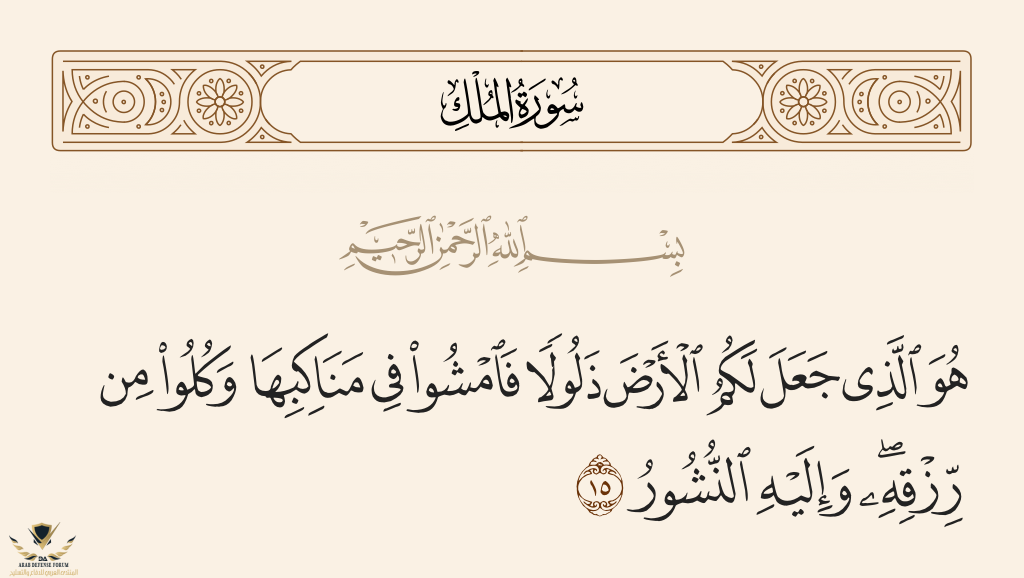 سُورَةُ الْمُلْكِ
بِسْمِ ٱللَّهِ ٱلرَّحْمَٰنِ ٱلرَّحِيمِ
هُوَ ٱلَّذِى جَعَلَ لَكُمُ ٱلْأَرْضَ ذَلُولًا فَٱمْشُوا۟ فِى مَنَاكِبِهَا وَكُلُوا۟ مِن
رِّزْقِهِۦ ۖ وَإِلَيْهِ ٱلنُّشُورُ ١٥
ARAB DEFENSE FORUM
المنتدى العربي للدفاع والتسليح